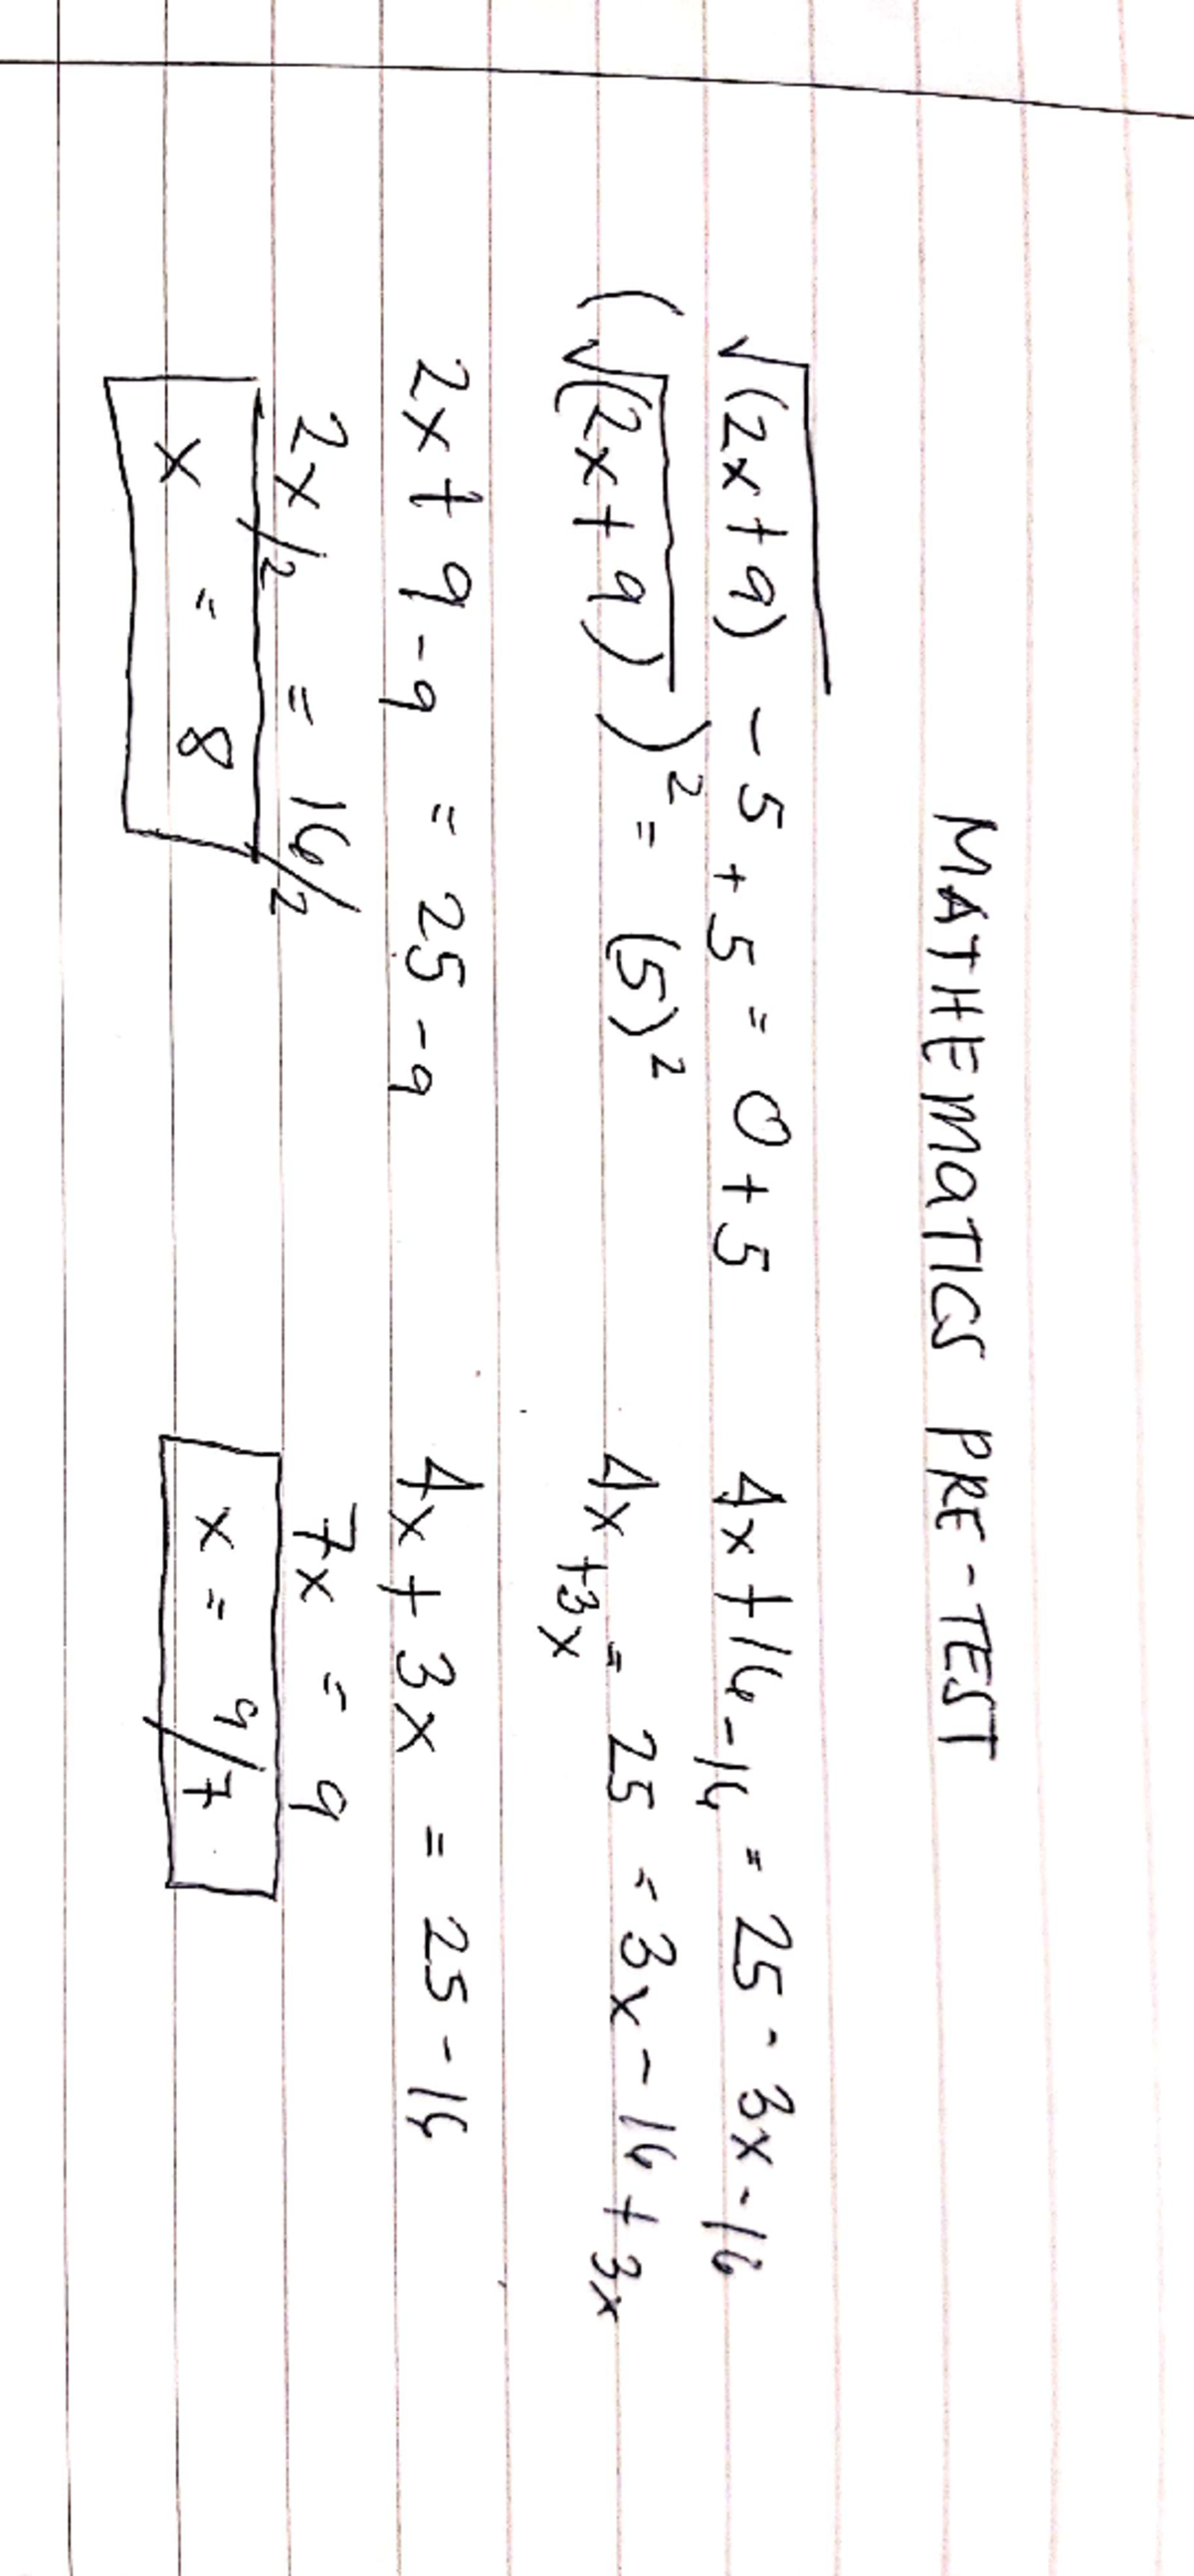 MATHEMATICS PRE-TEST
√(2x+9) - 5 + 5 = 0 + 5
(√(2x+9))² = (5)²
2x + 9 - 9 = 25 - 9
2x/2 = 16/2
x = 8
4x + 16 - 16 = 25 - 3x - 16
4x + 3x = 25 - 3x - 16 + 3x
4x + 3x = 25 - 16
7x = 9
x = 9/7